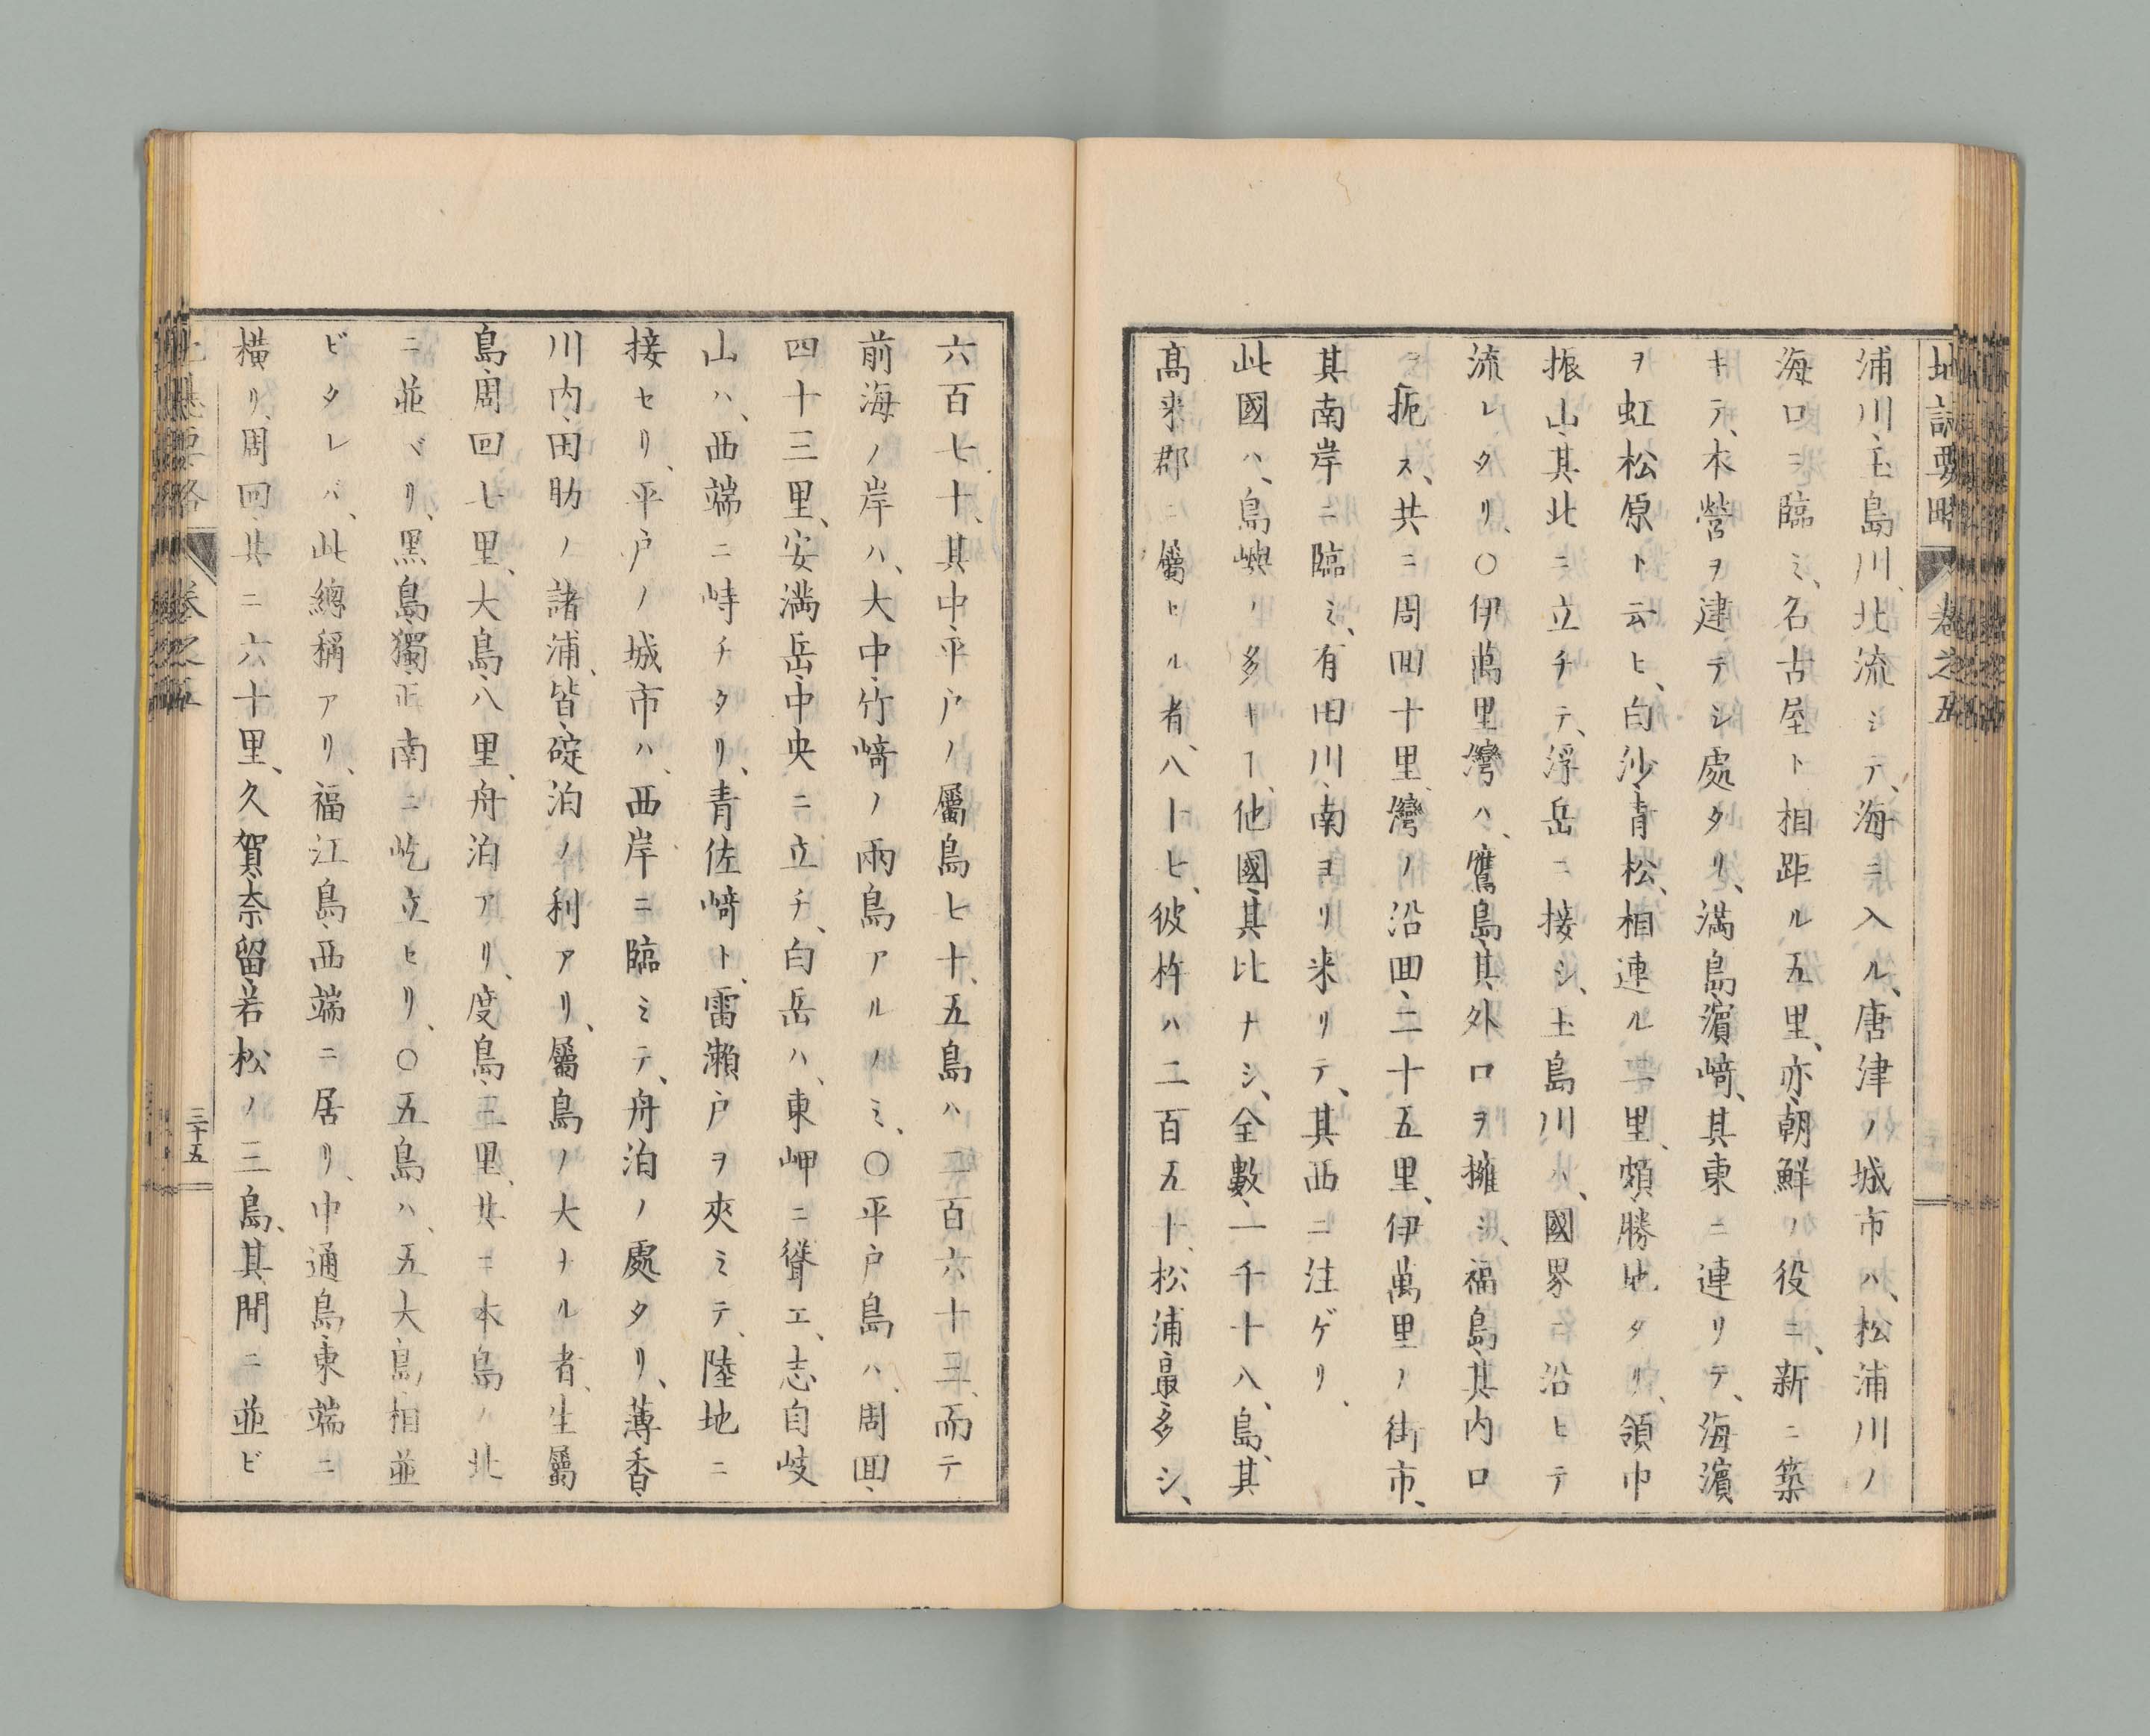 地誌要略 卷之五
浦川、玉島川、北流シテ、海ニ入ル、唐津ノ城市ハ、松浦川ノ
海口ニ臨ミ、名古屋ト相距ル五里、亦朝鮮ノ役ニ、新ニ築
キテ、本營ヲ建テシ處タリ、満島、濵﨑、其東ニ連リテ、海濵
ヲ虹松原ト云ヒ、白沙青松、相連ル二里、頗勝地タリ、領巾
振山、其北ニ立チテ、浮岳ニ接シ、玉島川ハ、國界ニ沿ヒテ
流レタリ、○伊萬里灣ハ、鷹島、其外口ヲ擁シ、福島、其内口
ヲ扼ス、共ニ周回十里、灣ノ沿回、二十五里、伊萬里ノ街市、
其南岸ニ臨ミ、有田川、南ヨリ来リテ、其西ニ注ゲリ、
此國ハ、島嶼ノ多キヿ、他國、其比ナシ、全數、一千十八島、其
髙来郡ニ屬セル者、八十七、彼杵ハ二百五十、松浦最多シ、
六百七十、其中、平戸ノ屬島七十、五島ハ二百六十三、而テ
前海ノ岸ハ、大中、竹﨑ノ兩島アルノミ、○平戸島ハ、周回、
四十三里、安満岳、中央ニ立チ、白岳ハ、東岬ニ聳エ、志自岐
山ハ、西端ニ峙チタリ、青佐﨑ト、雷瀬戸ヲ夾ミテ、陸地ニ
接セリ、平戸ノ城市ハ、西岸ニ臨ミテ、舟泊ノ處タリ、薄香、
川内、田助ノ諸浦、皆碇泊ノ利アリ、屬島ノ大ナル者、生屬
島、周回七里、大島、八里、舟泊アリ、度島、三里、共ニ本島ノ北
ニ並ベリ、黒島、獨正南ニ屹立セリ、○五島ハ、五大島、相並
ビタレバ、此總稱アリ、福江島、西端ニ居リ、中通島、東端ニ
横リ、周回、共ニ六十里、久賀、奈留、若松ノ三島、其間ニ並ビ
卷之五
三十五